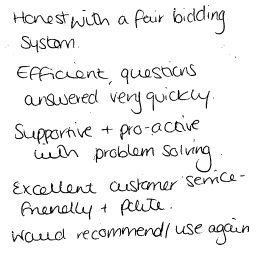 Honest with a fair bidding
System.
Efficient, questions
answered very quickly.
Supportive + pro-active
with problem solving.
Excellent customer service -
Friendly + Polite.
Would recommend/use again